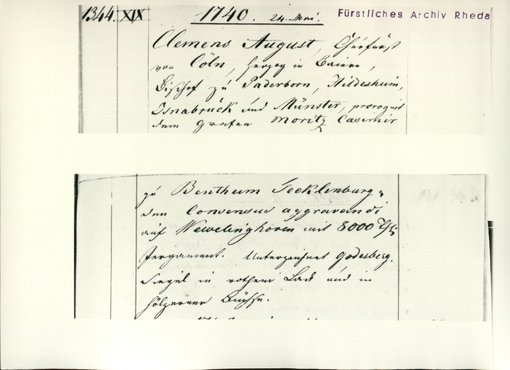 1344. XIX 1740. 24. Mai. Fürstliches Archiv Rheda
Clemens August, Churfürst
von Cöln, Herzog in Baiern,
Bischof zu Paderborn, Hildesheim,
Osnabrück und Münster, prorogirt
dem Grafen Moritz Casimir
zu Bentheim Tecklenburg
den Consensus aggravandi
auf Wevelinghoven mit 8000
Pergament. Unterzeichnet Godesberg.
Siegel in rothem Lack und in
hölzerner Büchse.